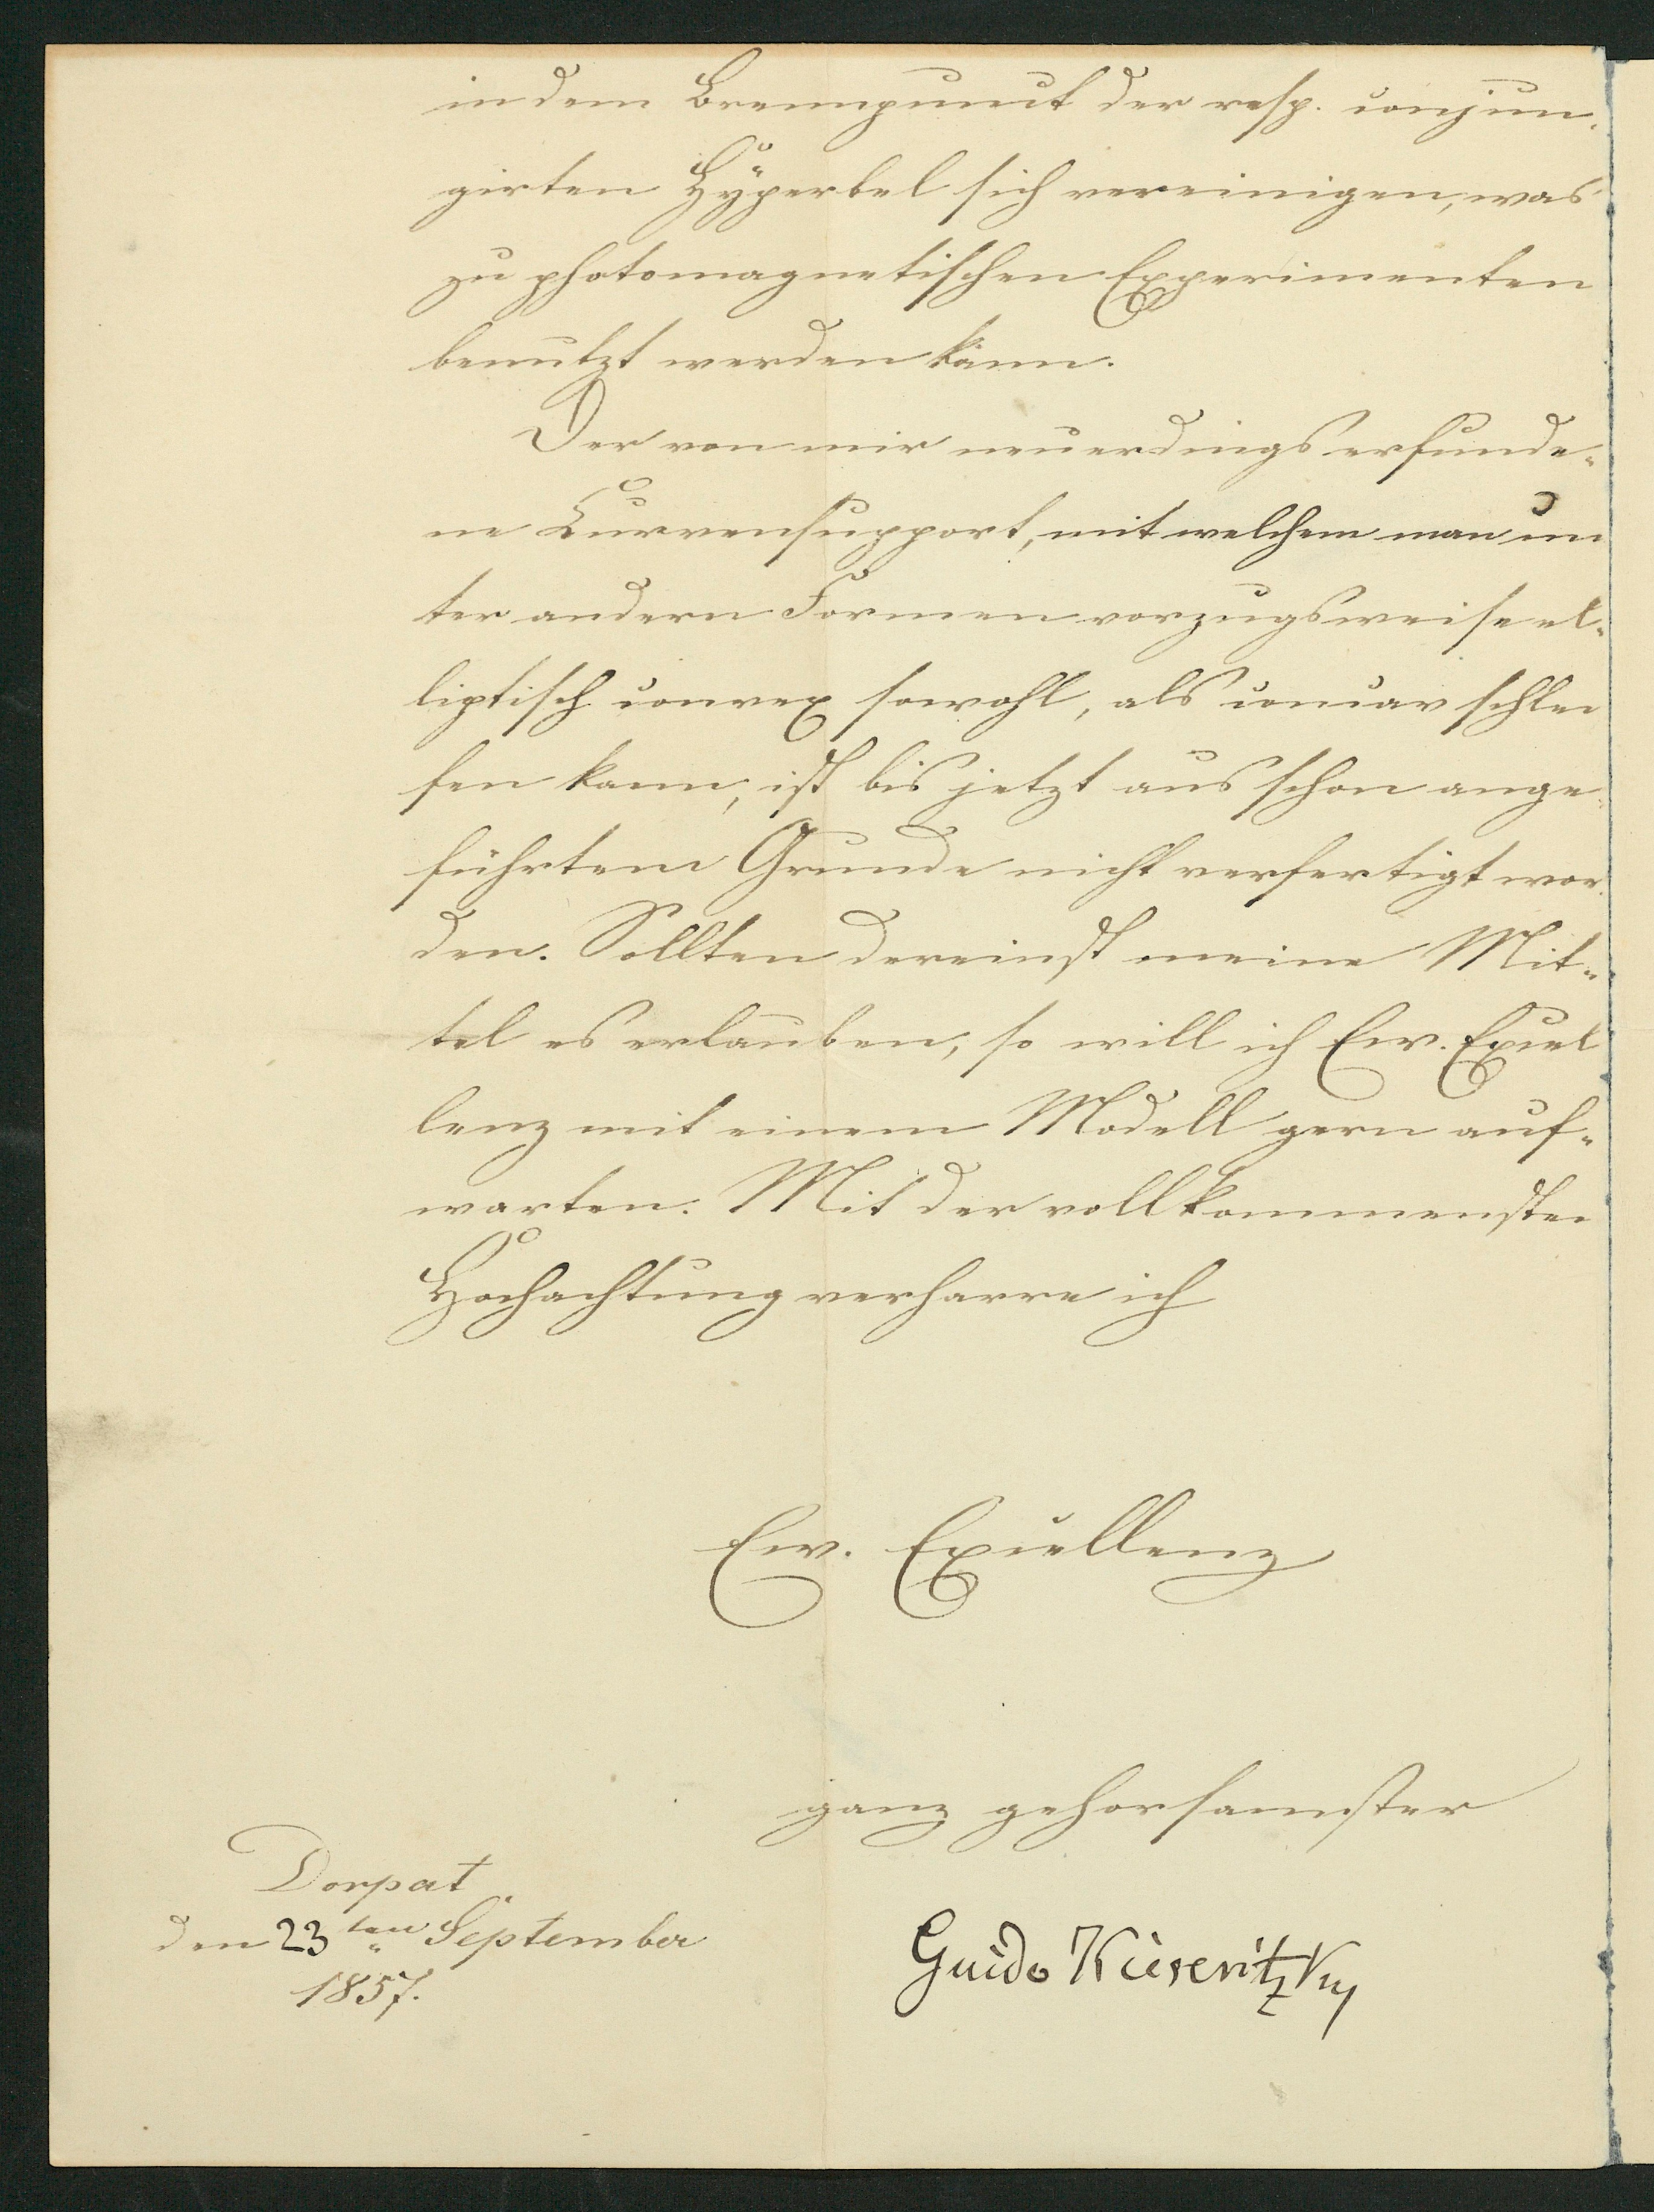 in dem Brennpunct der resp. conjun-
girten Hÿperbel sich vereinigen, was
zu photomagnetischen Experimenten
benutzt werden kann.
Der von mir neuerdings erfunde-
ne Curvensupport, mit welchem man un
ter andern Formen vorzugsweise el-
liptisch convex sowohl, als concav schlei
fen kann, ist bis jetzt aus schon ange-
führtem Grunde nicht verfertigt wor-
den. Sollten dereinst meine Mit-
tel es erlauben, so will ich Ew. Excel
lenz mit einem Modell gern auf-
warten. Mit der vollkommensten
Hochachtung verharre ich
Ew. Excellenz
ganz gehorsamster
Dorpat
den 23ten September
1857.
Guido Kieseritzky